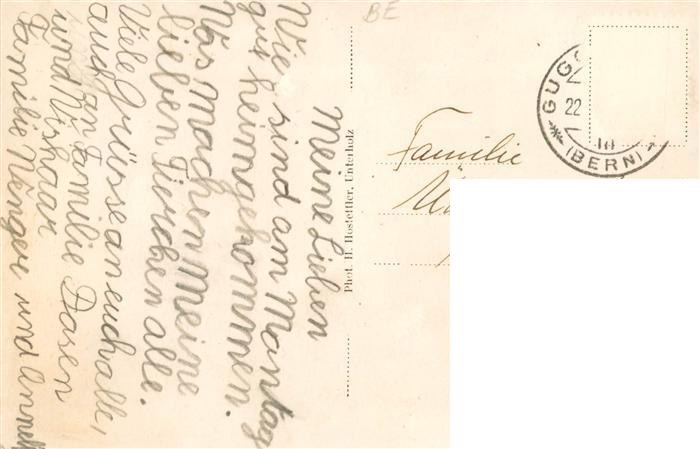 Meine Lieben
Wir sind am Montag
gut heimgekommen.
Was Machen Meine
lieben Tierchen alle.
Viele Grüsse an euch alle,
auch In Familie Dasen
und
Familie Wenger und
Phot. H. Hostettler, Unterholz
BE
Familie
22
III
(BERN)